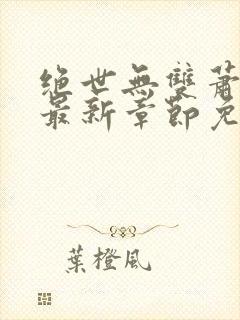 絕世無雙蕭
最新章節免
葉橙風